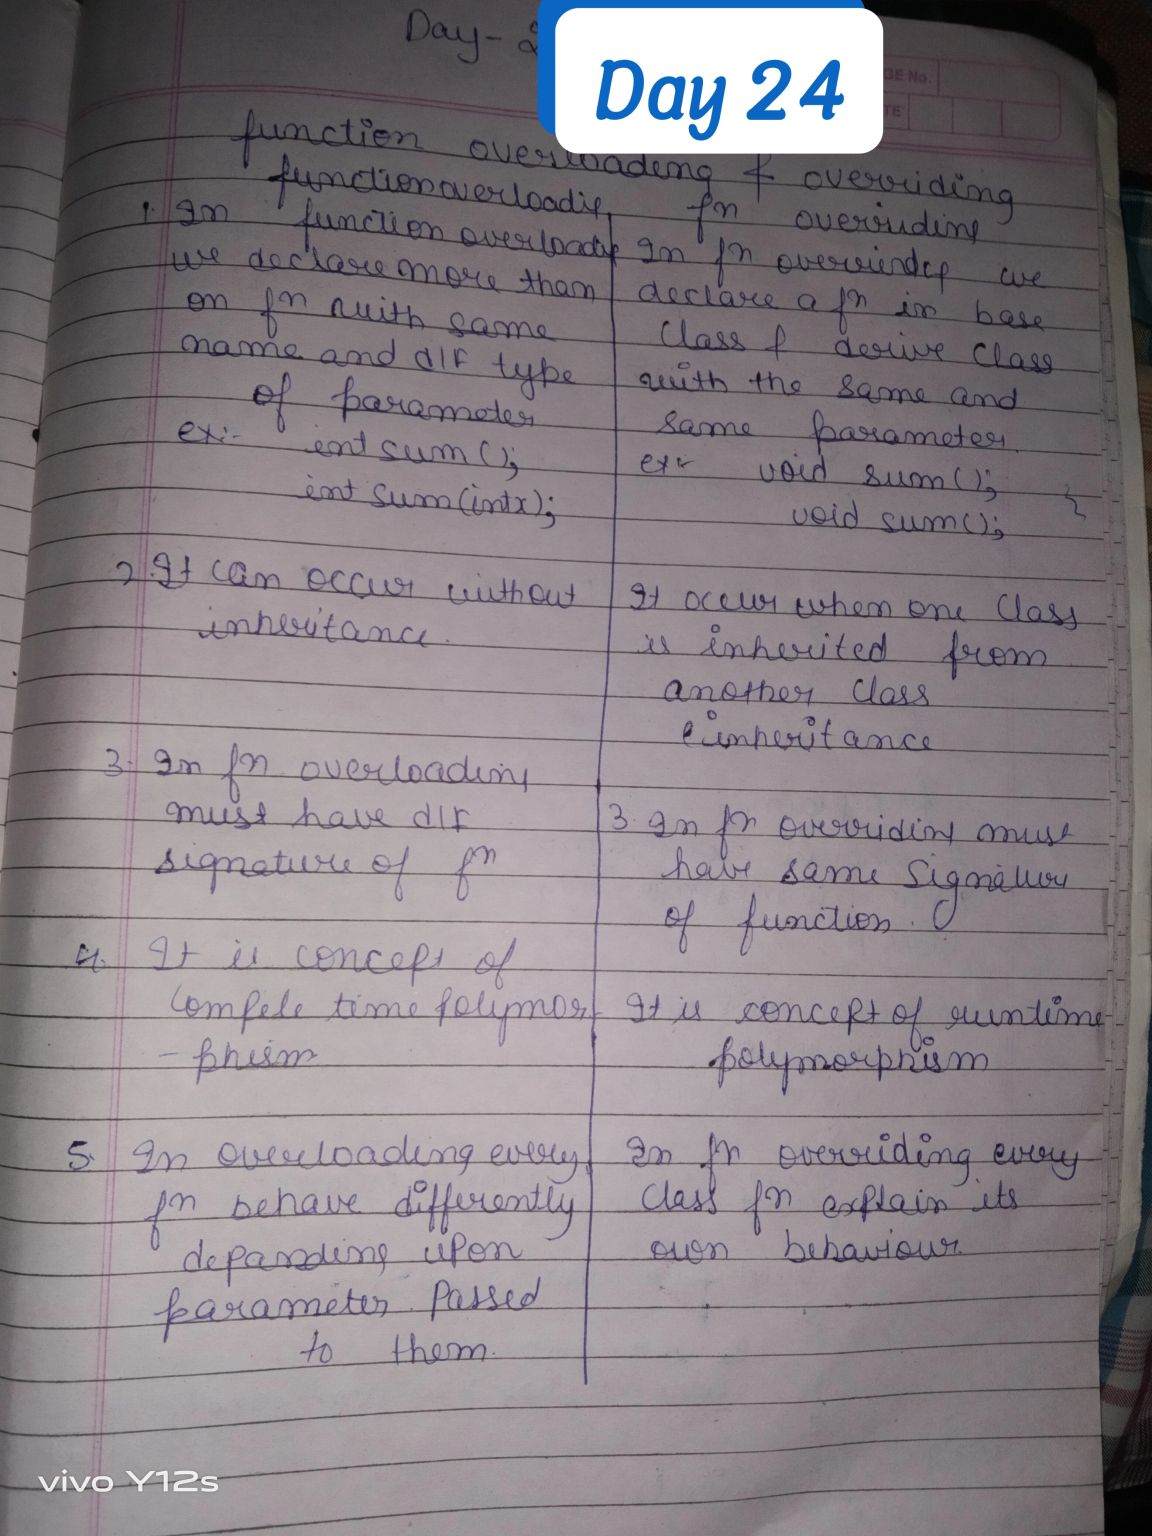 Day-
Day 24
GE No.
TE
function overloading & overriding
function overloading
fn overriding
1. In function overloading
we declare more than
on fn with same
name and diff type
of parameter
ex:- int sum();
int sum(intx);
In fn overriding we
declare a fn in base
class & derive class
with the same and
same parameter.
ex:- void sum();
void sum();
2. It can occur without
inheritance.
It occur when one class
is inherited from
another class
inheritance
3. In fn overloading
must have diff
signature of fn
3. In fn overriding must
have same signature
of function.
4. It is concept of
compile time polymor
-phism
It is concept of runtime
polymorphism
5. In overloading every
fn behave differently
depanding upon
parameter passed
to them.
In fn overriding every
class fn explain its
own behaviour.
vivo Y12s